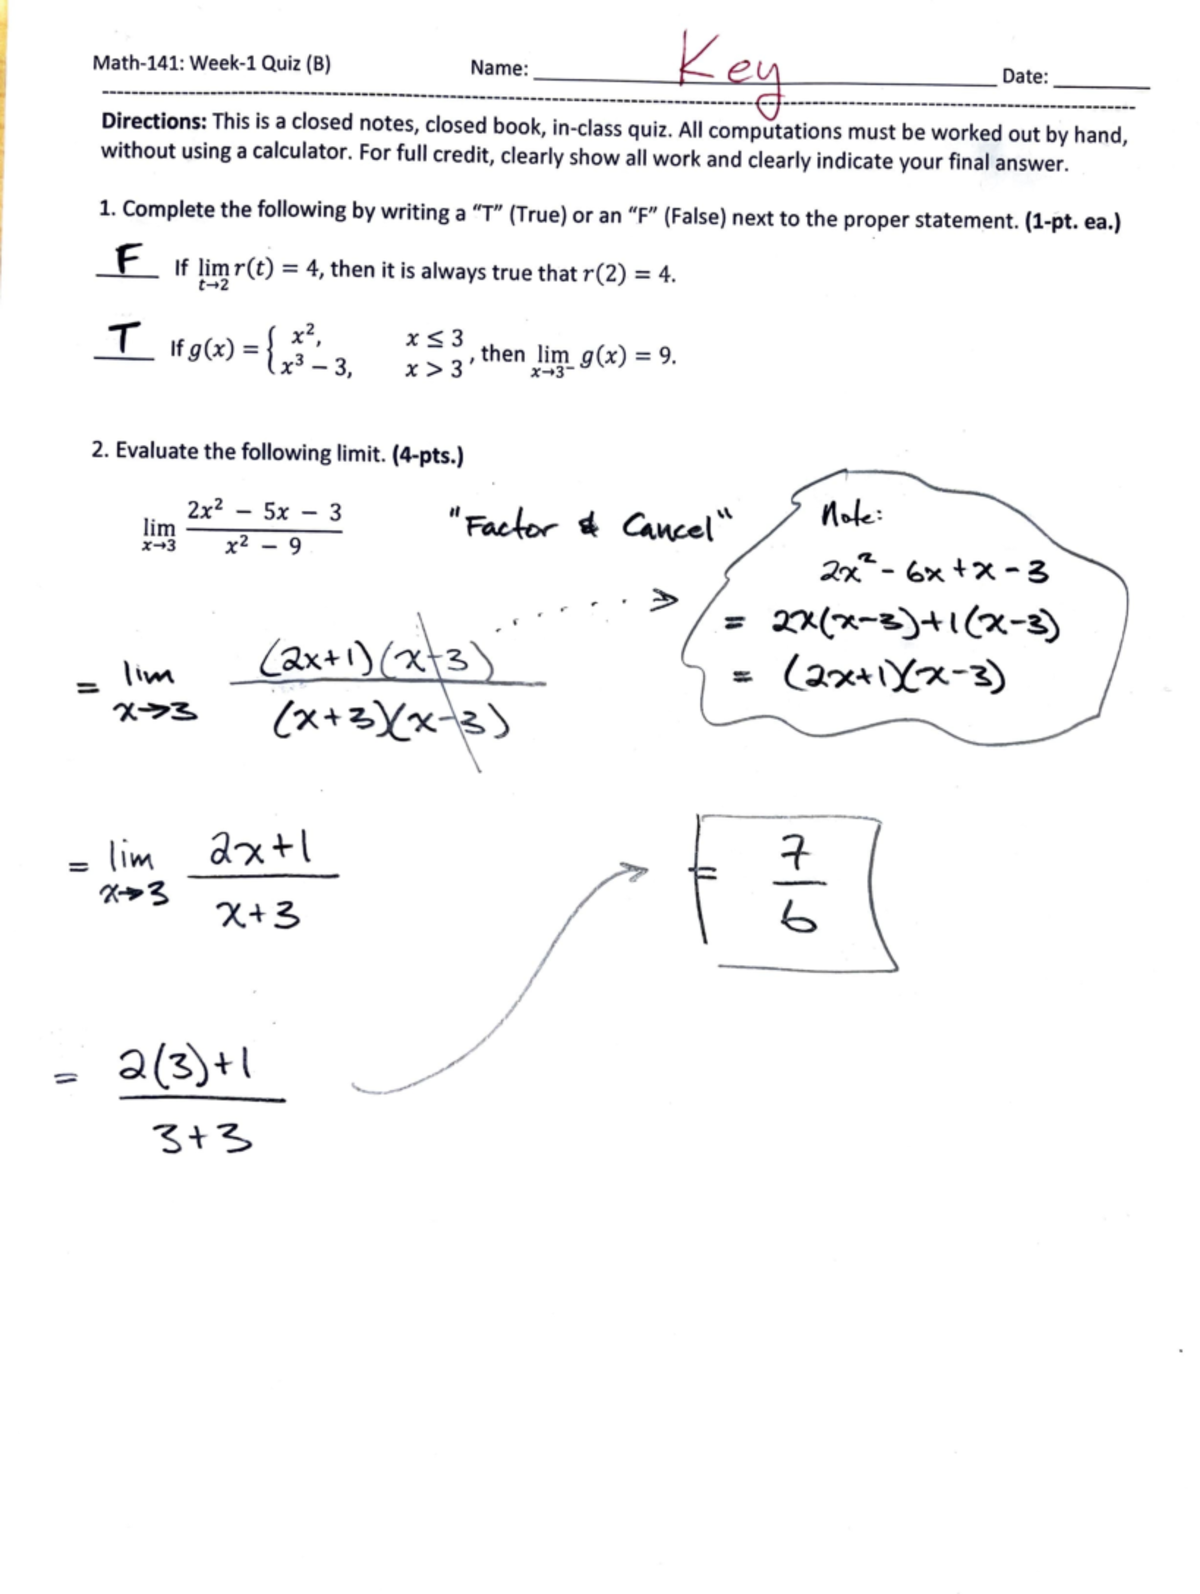 Math-141: Week-1 Quiz (B) Name: Key Date:
Directions: This is a closed notes, closed book, in-class quiz. All computations must be worked out by hand,
without using a calculator. For full credit, clearly show all work and clearly indicate your final answer.
1. Complete the following by writing a “T” (True) or an “F” (False) next to the proper statement. (1-pt. ea.)
F If lim r(t) = 4, then it is always true that r(2) = 4.
t→2
T If g(x) = { x², x ≤ 3
x³ − 3, x > 3 , then lim g(x) = 9.
x→3⁻
2. Evaluate the following limit. (4-pts.)
lim 2x² − 5x − 3
x→3 x² − 9
"Factor & Cancel"
Note:
2x² - 6x + x - 3
= 2x(x-3)+1(x-3)
= (2x+1)(x-3)
= lim (2x+1)(x-3)
x→3 (x+3)(x-3)
= lim 2x+1
x→3 x+3
= 2(3)+1
3+3
= 7
6